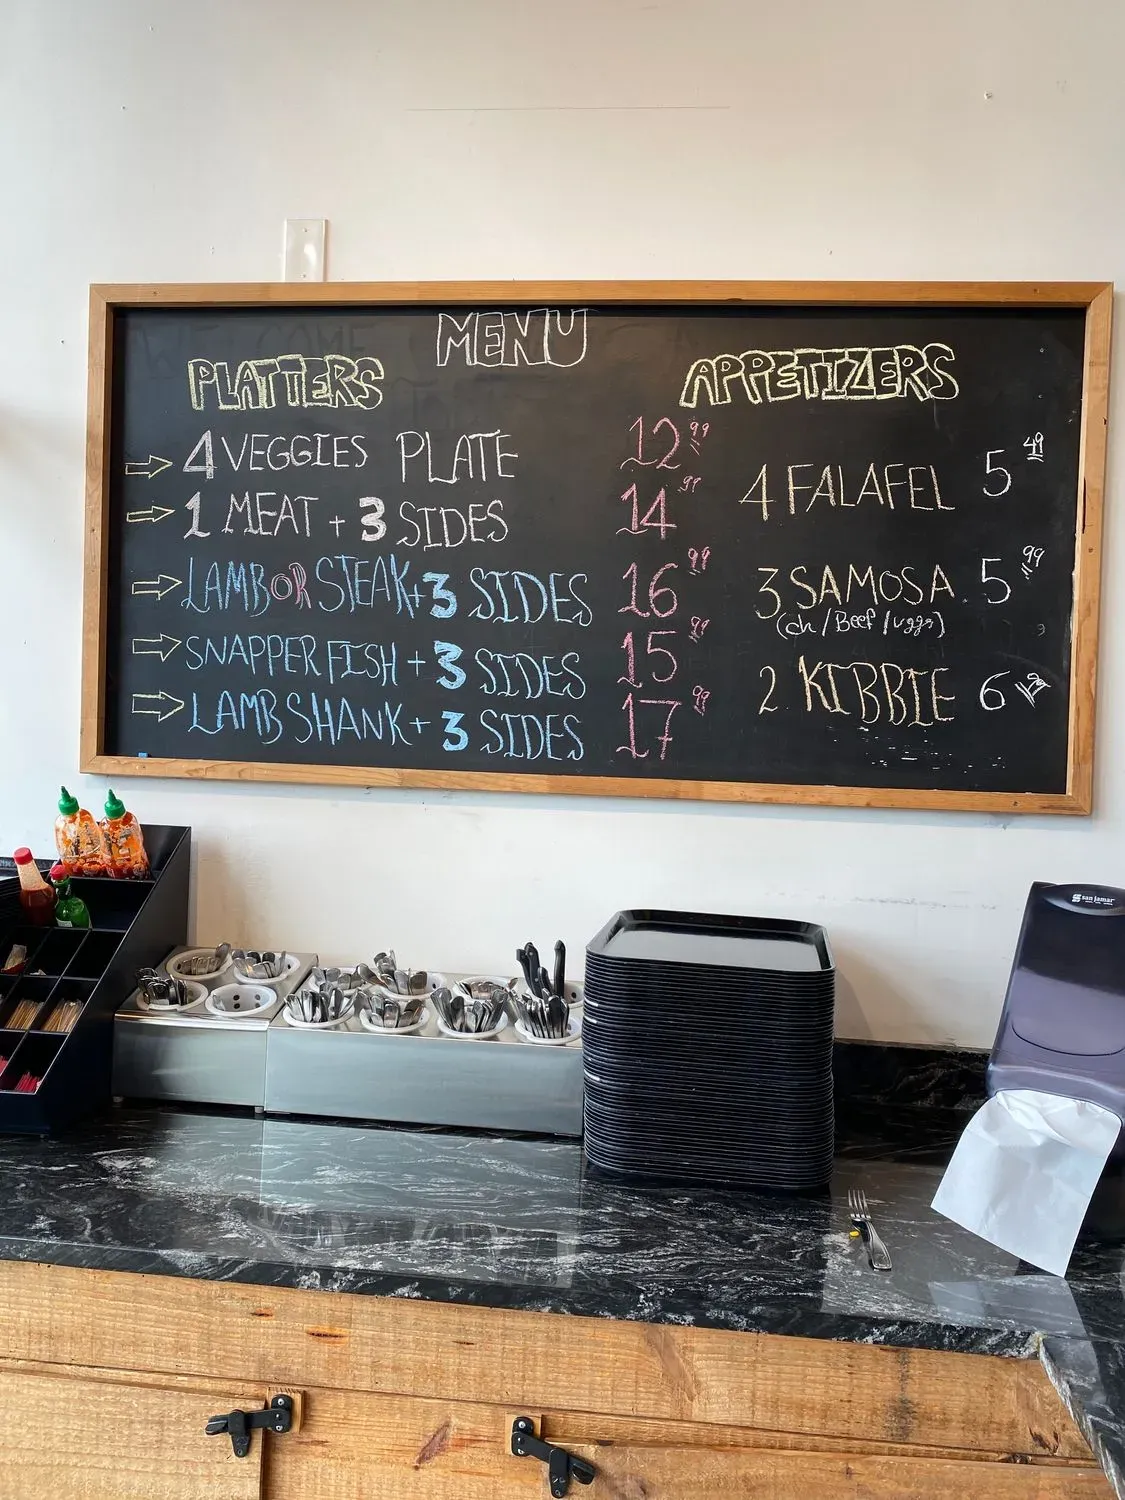 MENU
PLATTERS
4 VEGGIES PLATE 12 99
1 MEAT + 3 SIDES 14 99
LAMB OR STEAK + 3 SIDES 16 99
SNAPPER FISH + 3 SIDES 15 99
LAMB SHANK + 3 SIDES 17 99
APPETIZERS
4 FALAFEL 5 49
3 SAMOSA 5 99
(ch / Beef / vggs)
2 KIBBIE 6
san jamar